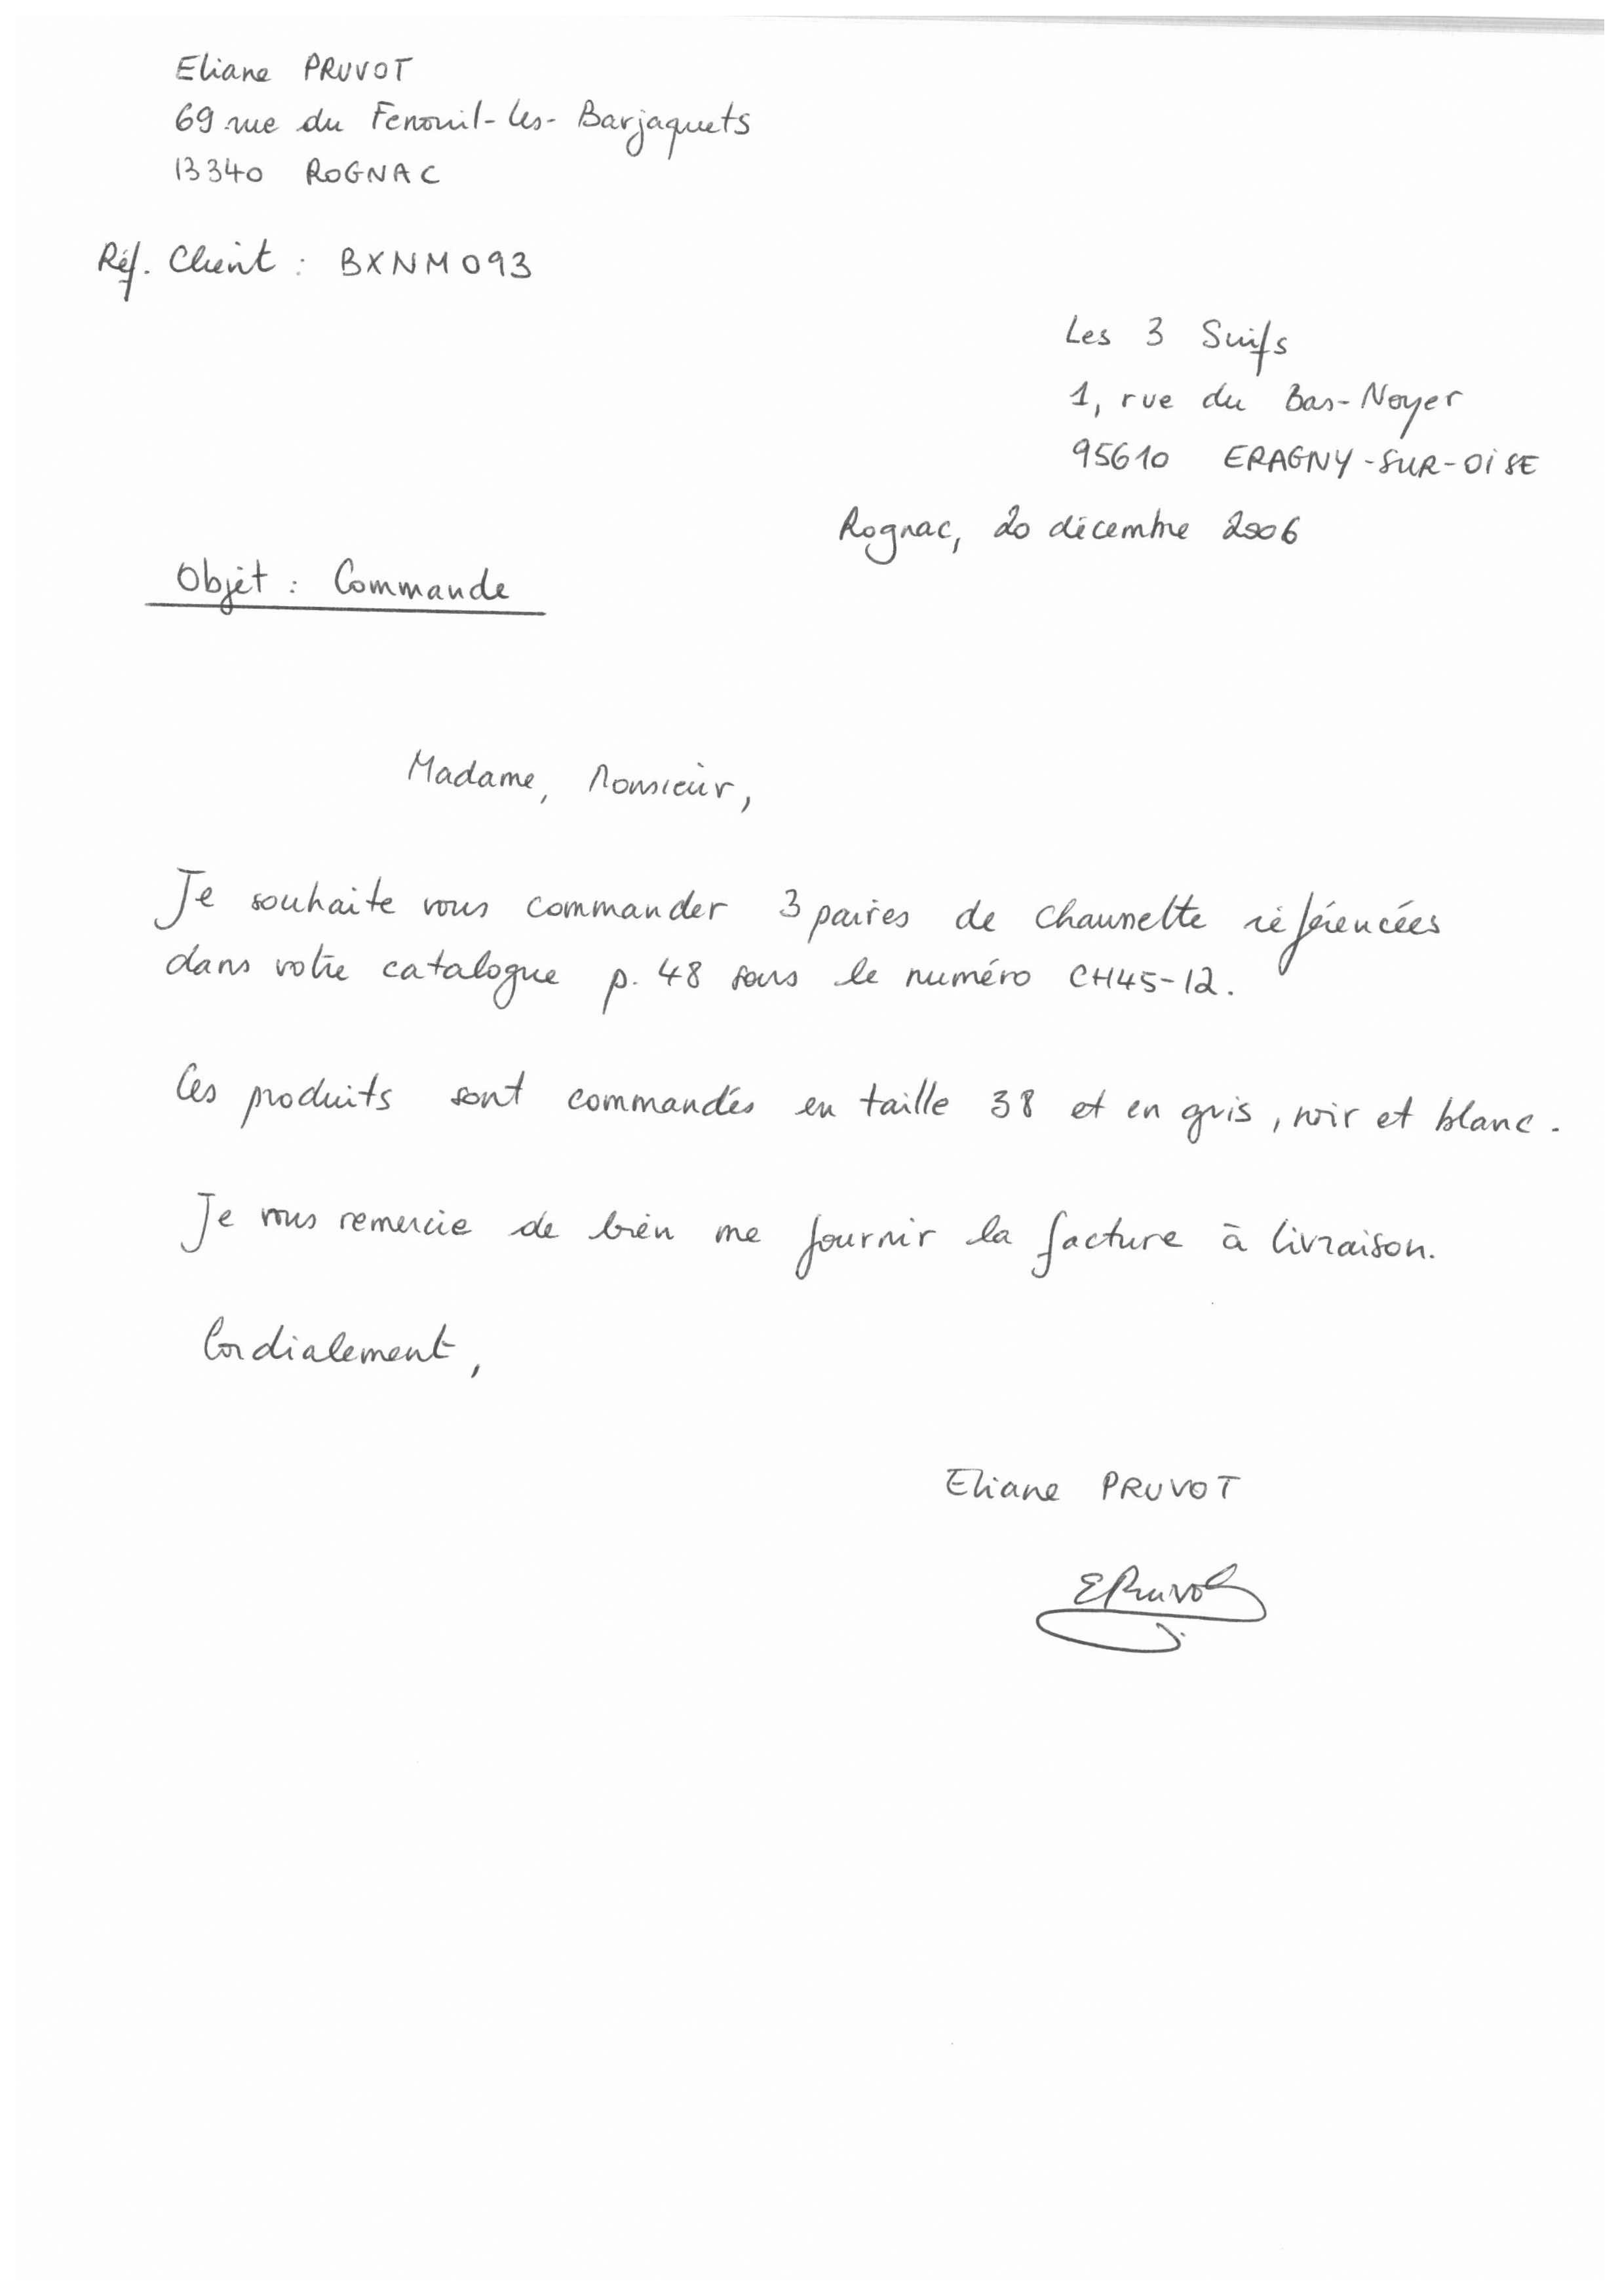 Eliane PRUVOT
69 rue du Fenouil-les-Barjaquets
13340 ROGNAC
Réf. Client : BXNM093
Les 3 Suifs
1, rue du Bas-Noyer
95610 ERAGNY-SUR-OISE
Rognac, 20 décembre 2006
Objet : Commande
Madame, Monsieur,
Je souhaite vous commander 3 paires de chaussette référencées
dans votre catalogue p. 48 sous le numéro CH45-12.
Ces produits sont commandés en taille 38 et en gris, noir et blanc.
Je vous remercie de bien me fournir la facture à livraison.
Cordialement,
Eliane PRUVOT
EPruvot